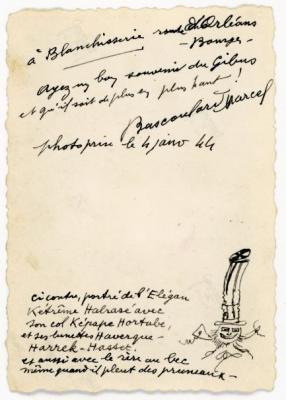 à Blanchisserie route d'Orléans
- Bourges -
Ayez un bon souvenir du Gibus
et qu'il soit de plus en plus haut !
Bascoulard Marcel
photo prise le 4 janv 44
ci contre, portré de l'Elégan
Kétrême Halrasé avec
son col Képapa Hortube,
et ses lunettes Havergue-
Harrek-Hasset.
et aussi avec le rère au bec
même quand il pleut des pruneaux -